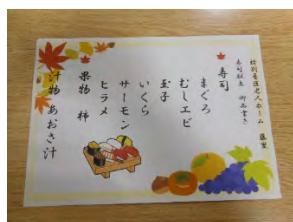 特別養護老人ホーム
寿司献立 御品書き
寿司
まぐろ
むしエビ
玉子
いくら
サーモン
ヒラメ
果物 柿
汁物 あおさ汁